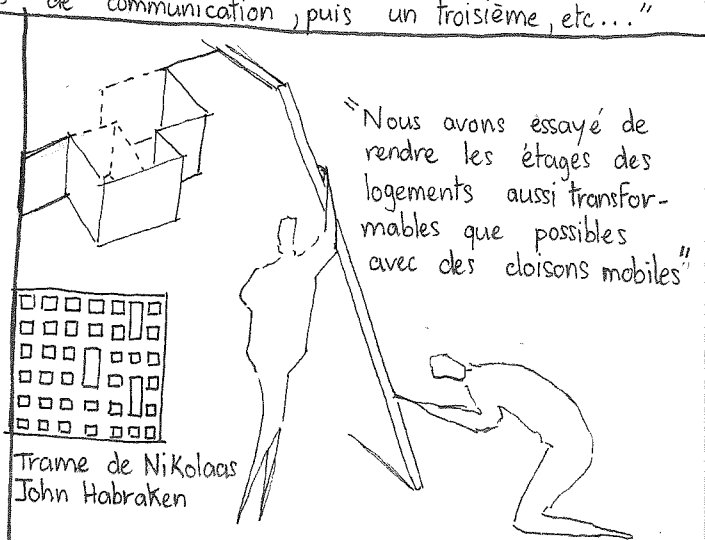 de communication, puis un troisième, etc..."
"Nous avons essayé de
rendre les étages des
logements aussi transfor-
mables que possibles
avec des cloisons mobiles"
Trame de Nikolaas
John Habraken